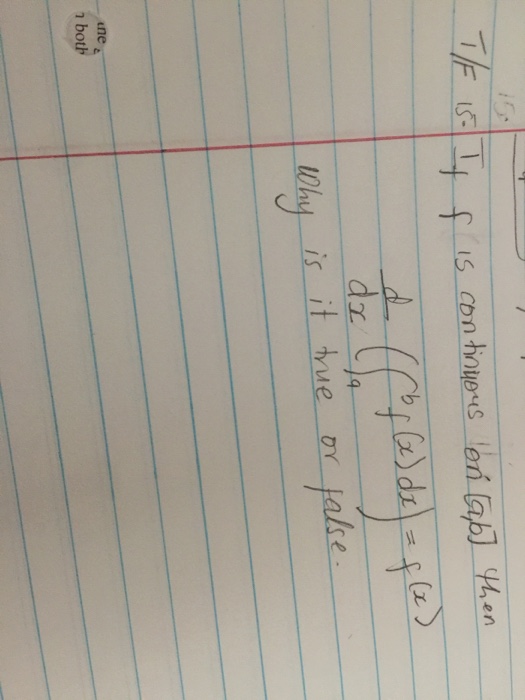 15.
T/F 15- If f is continuous on [a,b] then
d/dx (∫ₐᵇ f(x) dx) = f(x)
Why is it true or false.
the
both